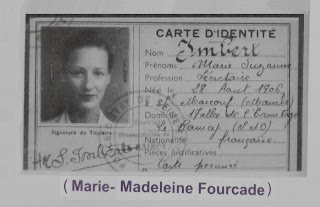 CARTE D'IDENTITÉ
Nom Imbert
Prénoms Marie Suzanne
Profession Secrétaire
Née le 28 Août 1906
à St Marcouf (Manche)
Domicile de l'Ermitage
Le Raincy (S & O)
Nationalité française
Pièces justificatives
Carte périmée
Signature du Titulaire :
M. S. Imbert
(Marie- Madeleine Fourcade)